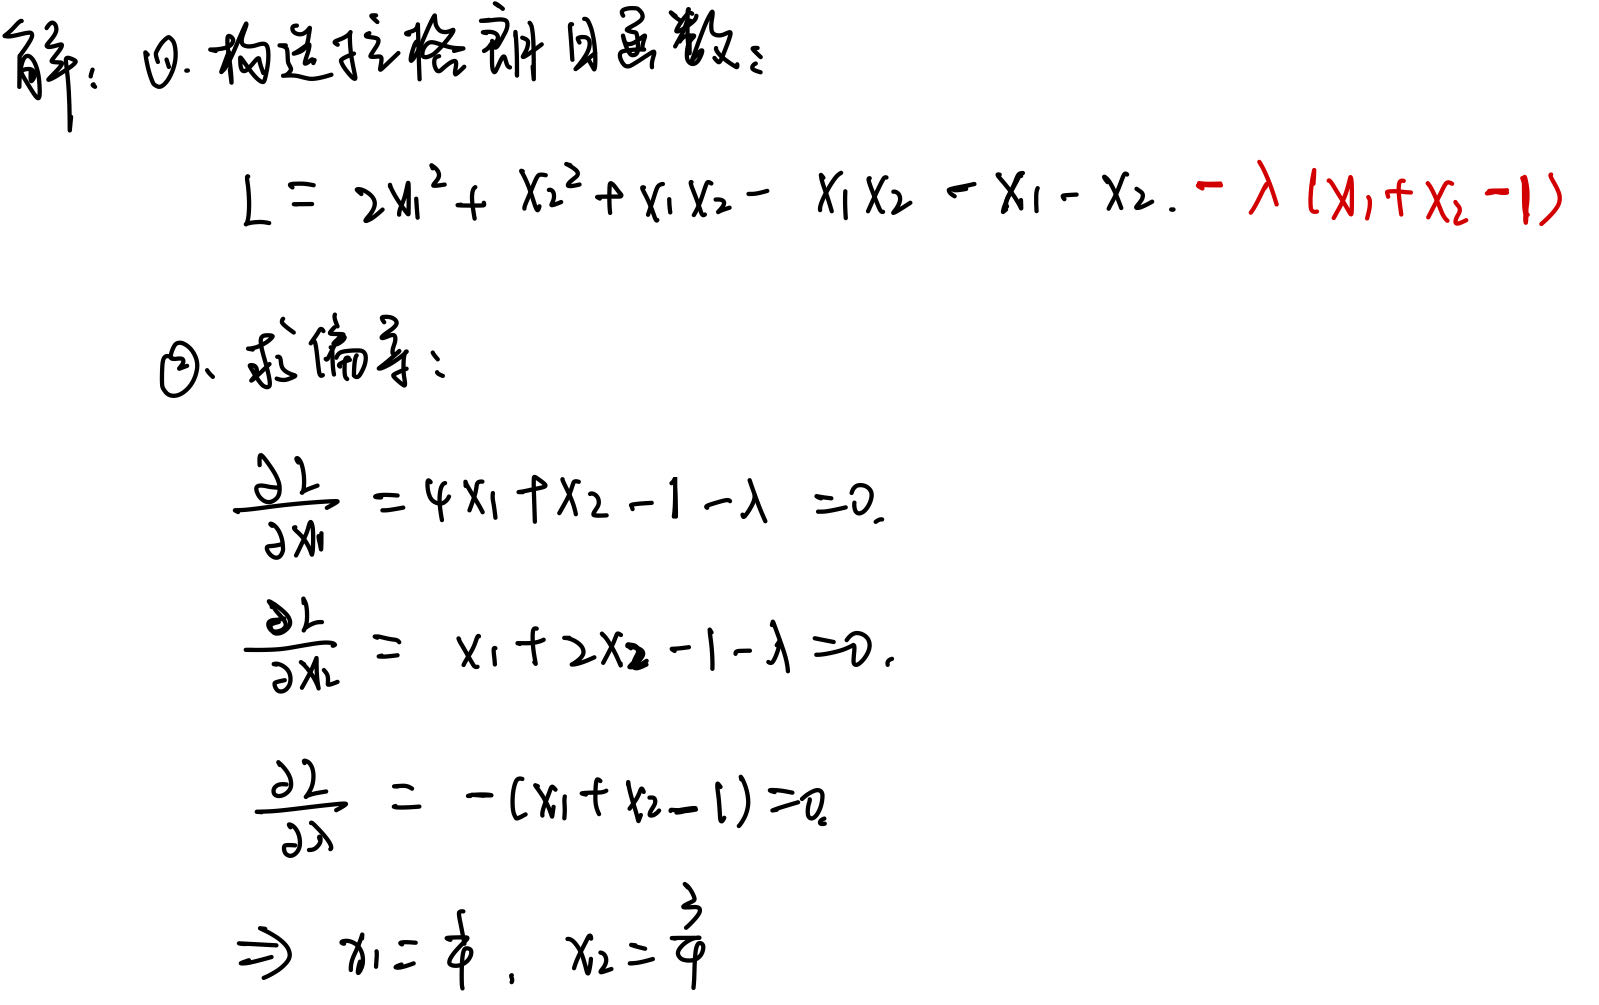 解: ①. 构造拉格朗日函数:
L = 2x₁² + x₂² + x₁x₂ - x₁x₂ - x₁ - x₂. - λ(x₁ + x₂ - 1)
②、求偏导:
∂L/∂x₁ = 4x₁ + x₂ - 1 - λ = 0.
∂L/∂x₂ = x₁ + 2x₂ - 1 - λ = 0.
∂L/∂λ = -(x₁ + x₂ - 1) = 0.
⇒ x₁ = 1/4, x₂ = 3/4